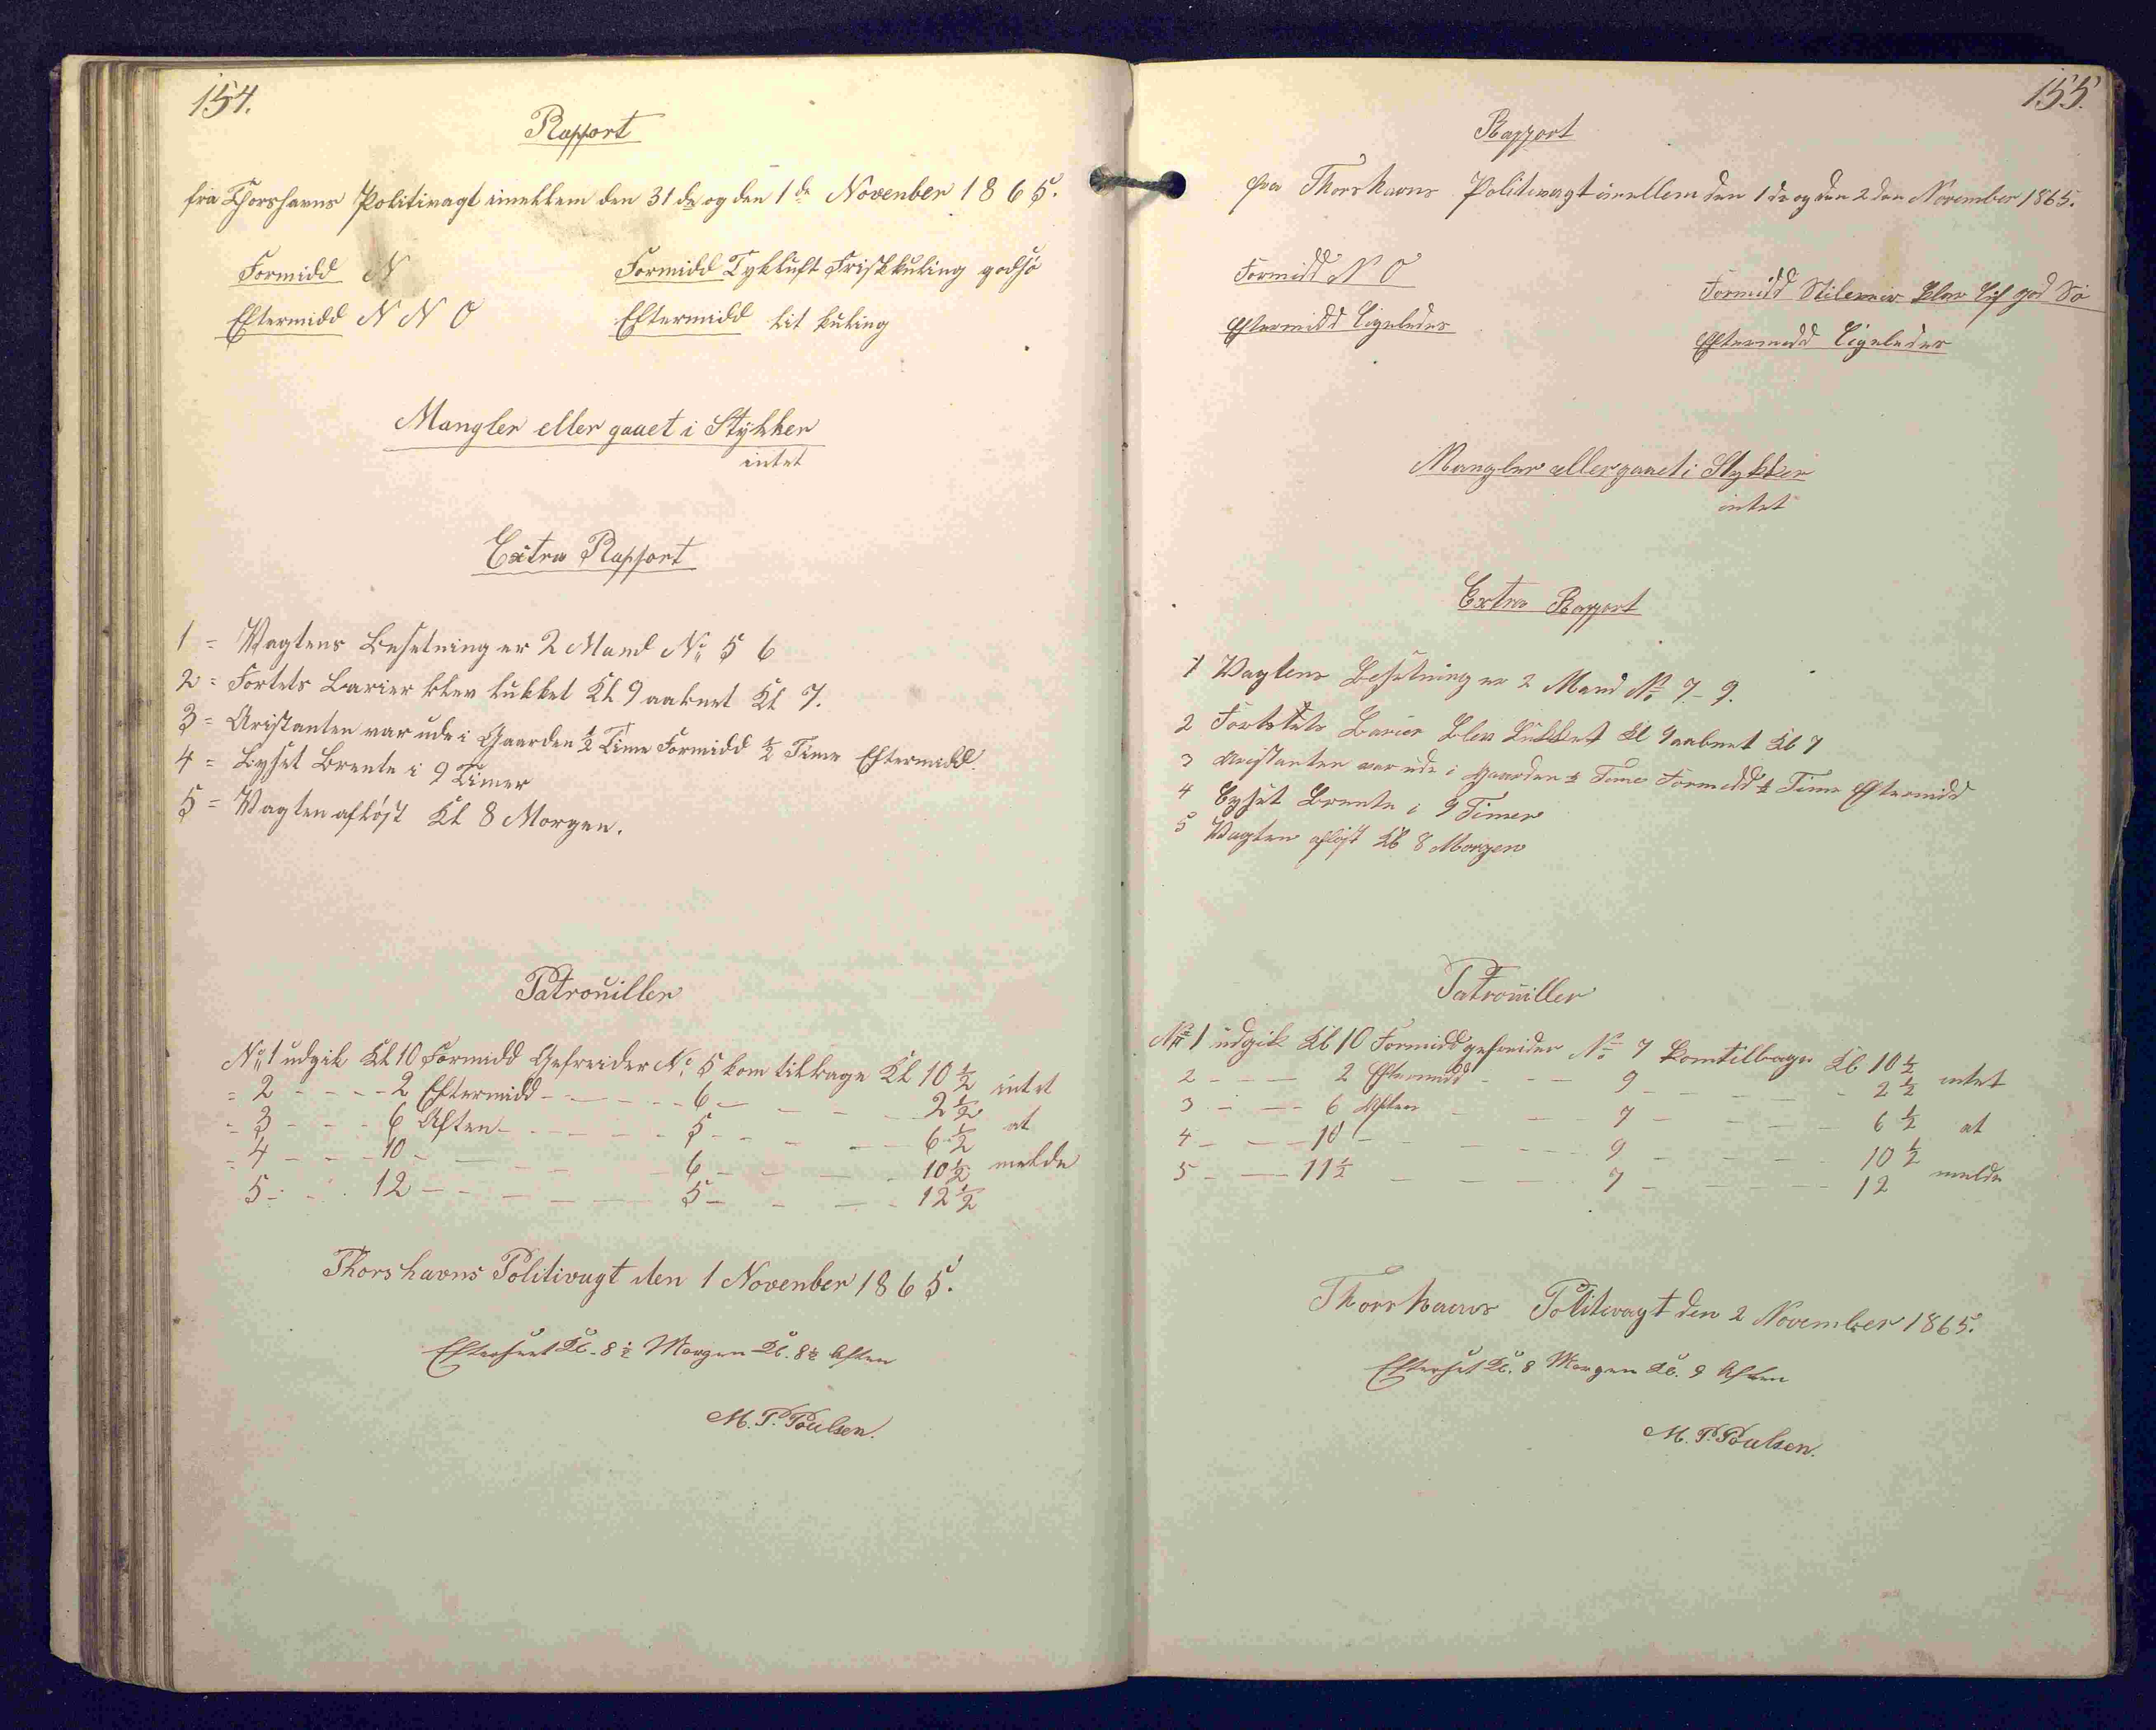 154.
Rapport
fra Thorshavns Politivagt imellem den 31 de og den 1de November 1865.
Formidd N
Formidd Tykluft Friskkuling godsø
Eftermidd N N O
Eftermidd lit kuling
Mangler eller gaaet i Stykker
intet
Extra Rapport
1 = Vagtens Besetning er 2 Mand No 5 6
2 = Fortets Barier blev lukket Kl 9 aabnet Kl 7.
3 = Aristanten var ude i Gaarden ½ Time Formidd ½ Time Eftermidd.
4 = Lyset Brente i 9 Timer
5 = Vagten afløst Kl 8 Morgen.
Patrouiller
No 1 udgik Kl 10 Formidd Gefreider No 5 kom tilbage Kl 10 ½ intet
= 2 - - - - 2 Eftermidd - - - - - 6 - - - - 2 ½
= 3 - - - 6 Aften - - - - - 5 - - - - 6 ½ at
= 4 - - - 10 - - - - - 6 - - - - 10 ½ melde
5 - - - 12 - - - - - 5 - - - - 12 ½
Thorshavns Politivagt den 1 November 1865.
Efterseet Kl. 8 ½ Morgen Kl. 8 ½ Aften
M. P. Poulsen.
155.
Rapport
fra Thorshavns Politivagt imellem den 1 de og den 2 den November 1865.
Formidd N O
Formidd Stileveir klar Luft god Sø
Eftermidd Ligeledes
Eftermidd Ligeledes
Mangler eller gaaet i Stykker
intet
Extra Rapport
1 Vagtens Besetning er 2 Mand No 7 - 9.
2 Fortets Barier blev Lukket Kl 9 aabnet Kl 7
3 Aristanten var ude i Gaarden ½ Time Formidd ½ Time Eftermidd
4 Lyset Brente i 9 Timer
5 Vagten afløst Kl 8 Morgen
Patrouiller
No 1 udgik Kl 10 Formidd gefreider No 7 kom tilbage Kl 10 ½ intet
2 - - - - 2 Eftermidd - - - 9 - - - - 2 ½
3 - - - 6 Aften - - - 7 - - - - 6 ½ at
4 - - - 10 - - - - 9 - - - - 10 ½
5 - - - 11 ½ - - - - 7 - - - - 12 melde
Thorshavns Politivagt den 2 November 1865.
Efterset Kl. 8 Morgen Kl. 9 Aften
M. P. Poulsen.